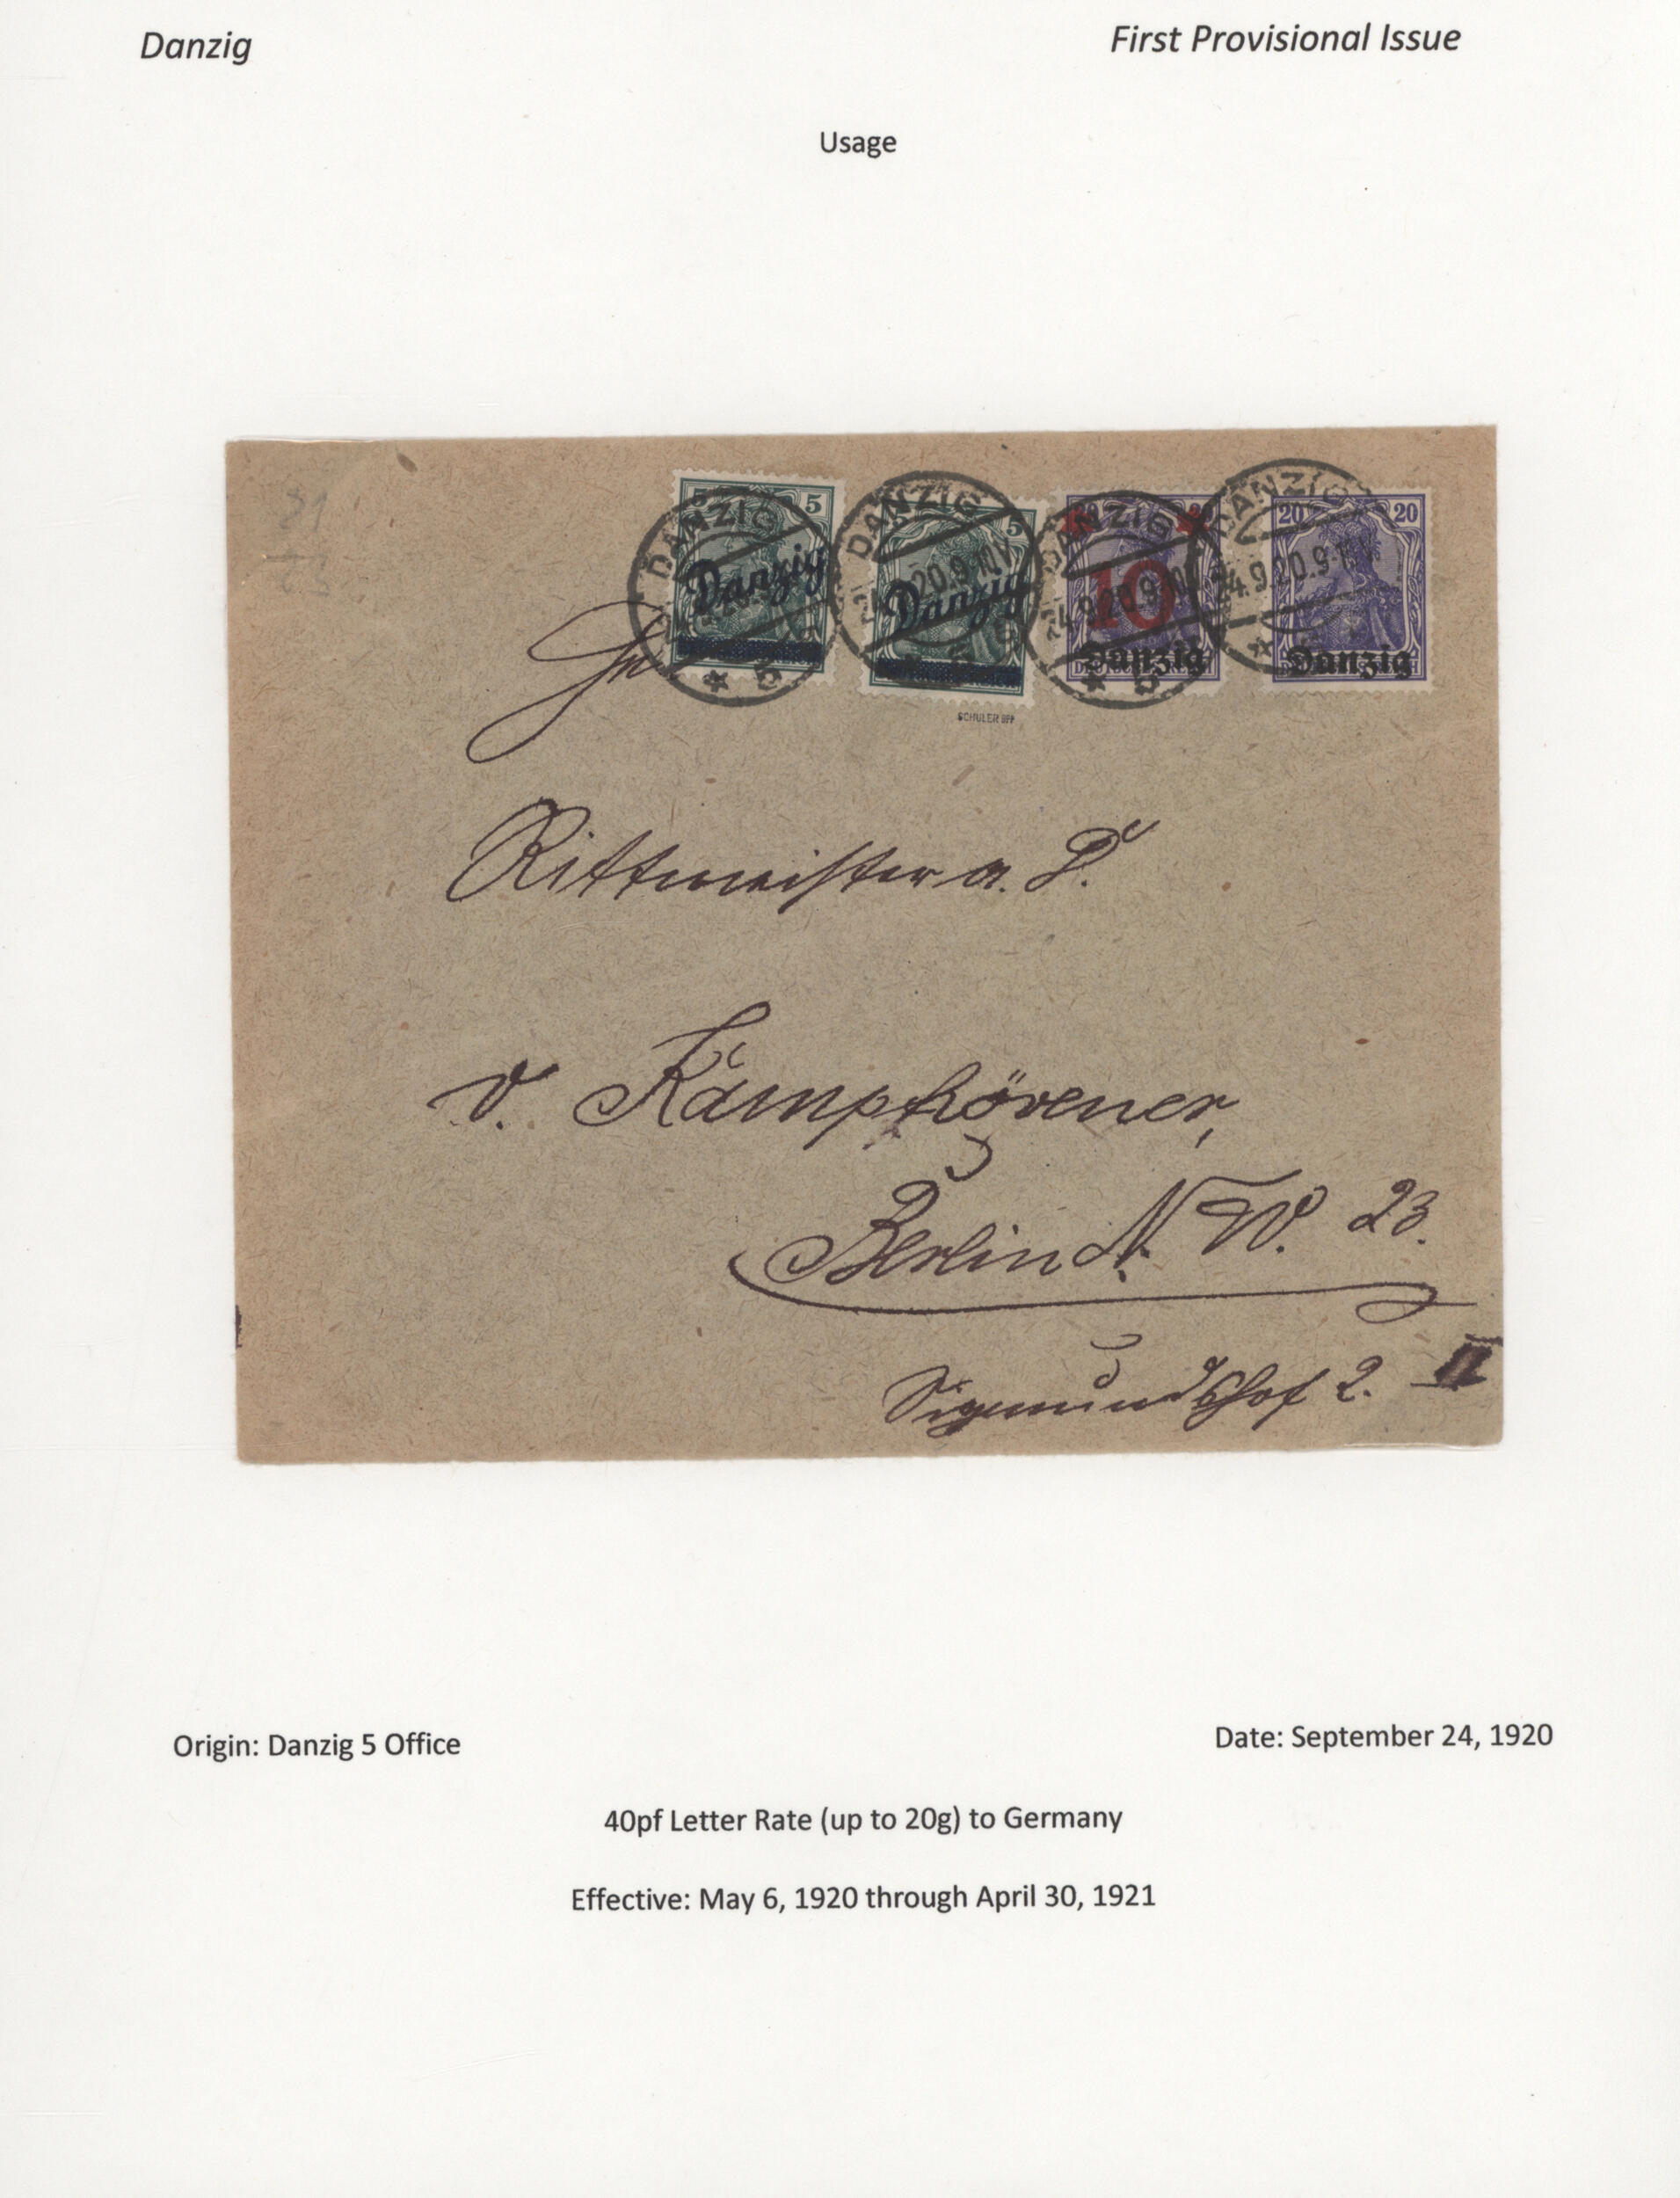 Danzig
First Provisional Issue
Usage
5 DANZIG Danzig * 5
5 DANZIG 20.9-10V Danzig
DANZIG 10 24.9.20.9-10 Danzig * 5
20 20 DANZIG 24.9.20.9-10V Danzig *
SCHÜLER BPP
Rittmeister a. D.
v. Kämphövener,
Berlin N. W. 23.
Sigmundshof 2. II
Origin: Danzig 5 Office
Date: September 24, 1920
40pf Letter Rate (up to 20g) to Germany
Effective: May 6, 1920 through April 30, 1921